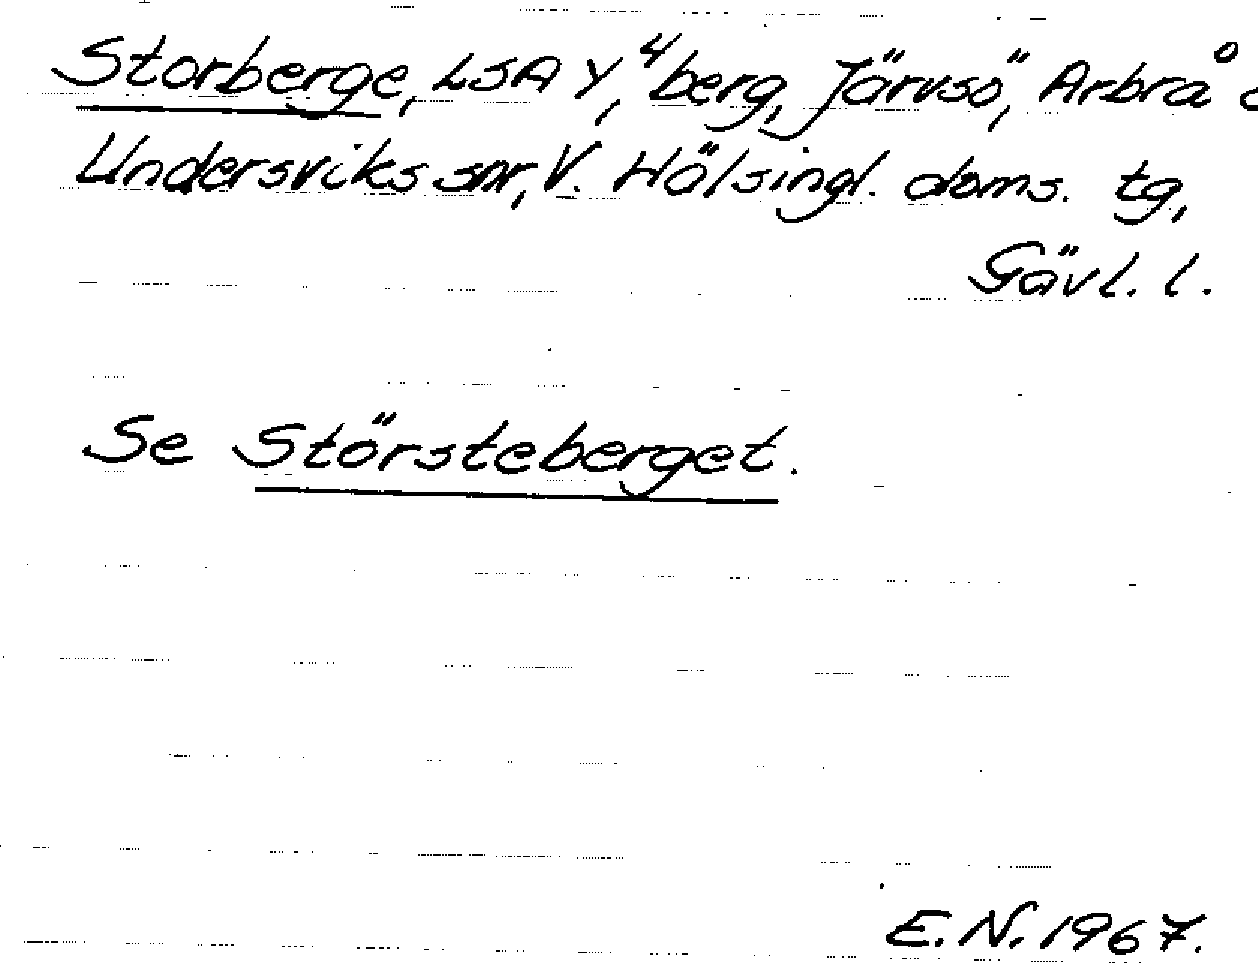 Storberge, LSA Y, 4 berg, Järvsö, Arbrå
Undersviks snr, V. Hälsingl. doms. tg,
Gävl. l.
Se Störsteberget.
E.N. 1967.